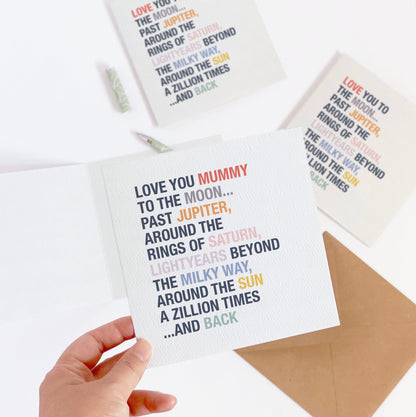 LOVE YOU TO
THE MOON...
PAST JUPITER,
AROUND THE
RINGS OF SATURN,
LIGHTYEARS BEYOND
THE MILKY WAY,
AROUND THE SUN
A ZILLION TIMES
...AND BACK
LOVE YOU TO
THE MOON...
PAST JUPITER,
AROUND THE
RINGS OF SATURN,
LIGHTYEARS
THE MILKY WAY,
AROUND THE SUN
A ZILLION TIMES
...AND BACK
LOVE YOU MUMMY
TO THE MOON...
PAST JUPITER,
AROUND THE
RINGS OF SATURN,
LIGHTYEARS BEYOND
THE MILKY WAY,
AROUND THE SUN
A ZILLION TIMES
...AND BACK